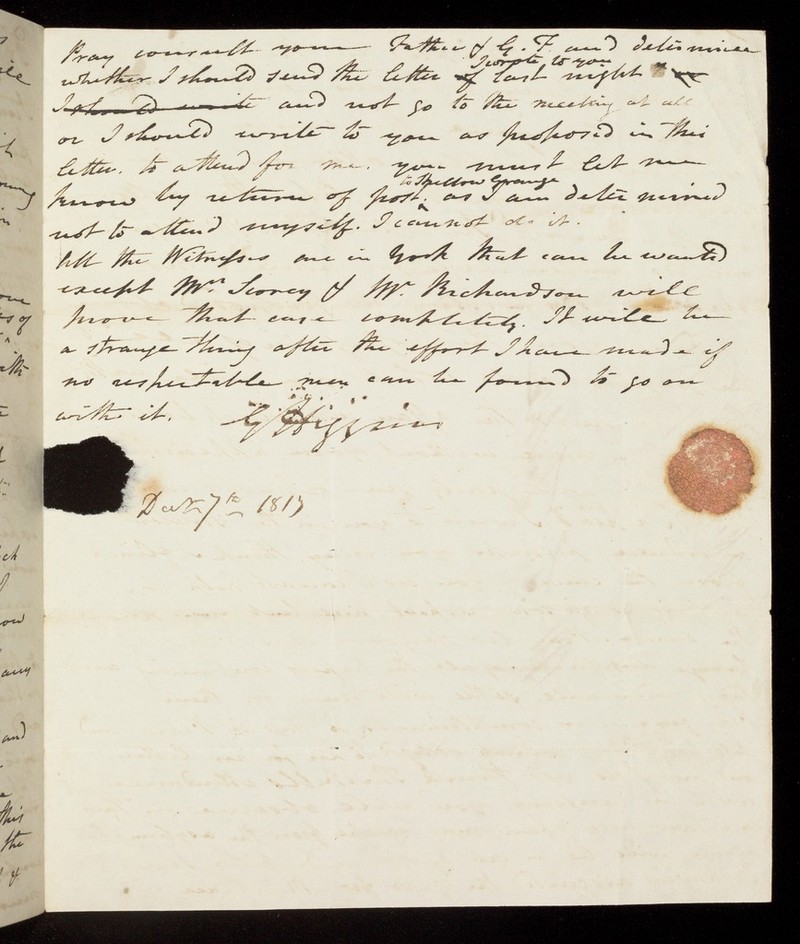 Pray consult your Father & G. F. and determine
whether I should send the letter of I wrote to you last night
I should write and not go to the meeting at all
or I should write to you as proposed in this
letter. to attend for me. you must let me
know by return of post. to Skellow Grange as I am determined
not to attend myself. I cannot do it.
All the Witnesses are in York that can be wanted
except Mrs. Scorey & Mr. Richardson will
prove that case completely. It will be
a strange thing after the effort I have made if
no respectable men can be found to go on
with it. G Higgins
7th 1813
ile
and
this
the